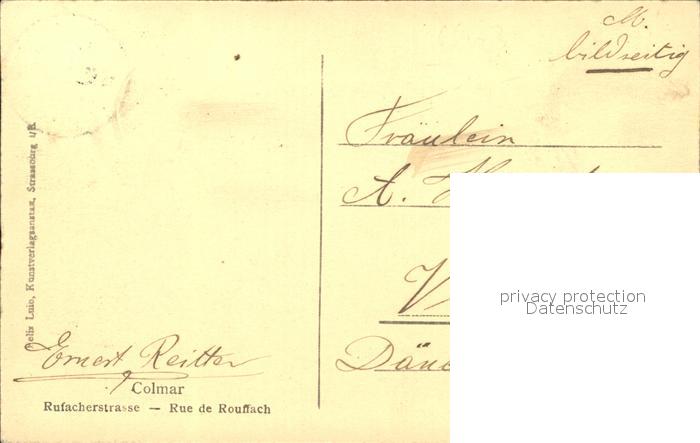 M.
bildseitig
Fräulein
A.
Felix Luib, Kunstverlagsanstalt, Strassburg i/E.
Ernest Reitter
Colmar
Rufacherstrasse — Rue de Rouffach
privacy protection
Datenschutz